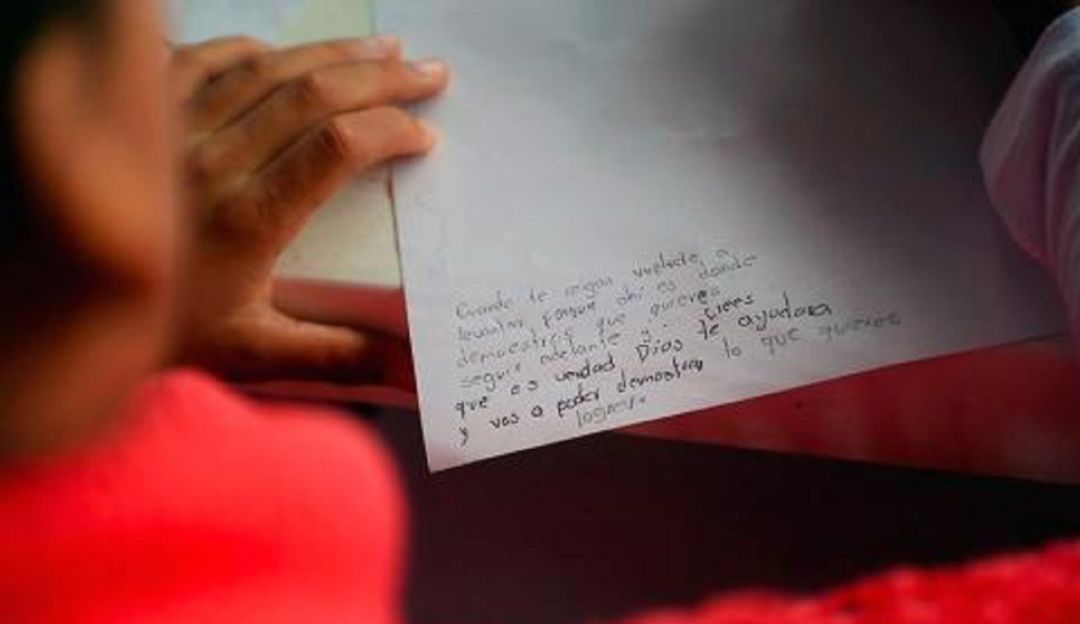 Cuando te caigas vuelvete a
levantar porque ahi es donde
demuestras que quieres
seguir adelante y. crees
que es verdad Dios te ayudara
y vas a poder demostrar lo que quieres
lograr.